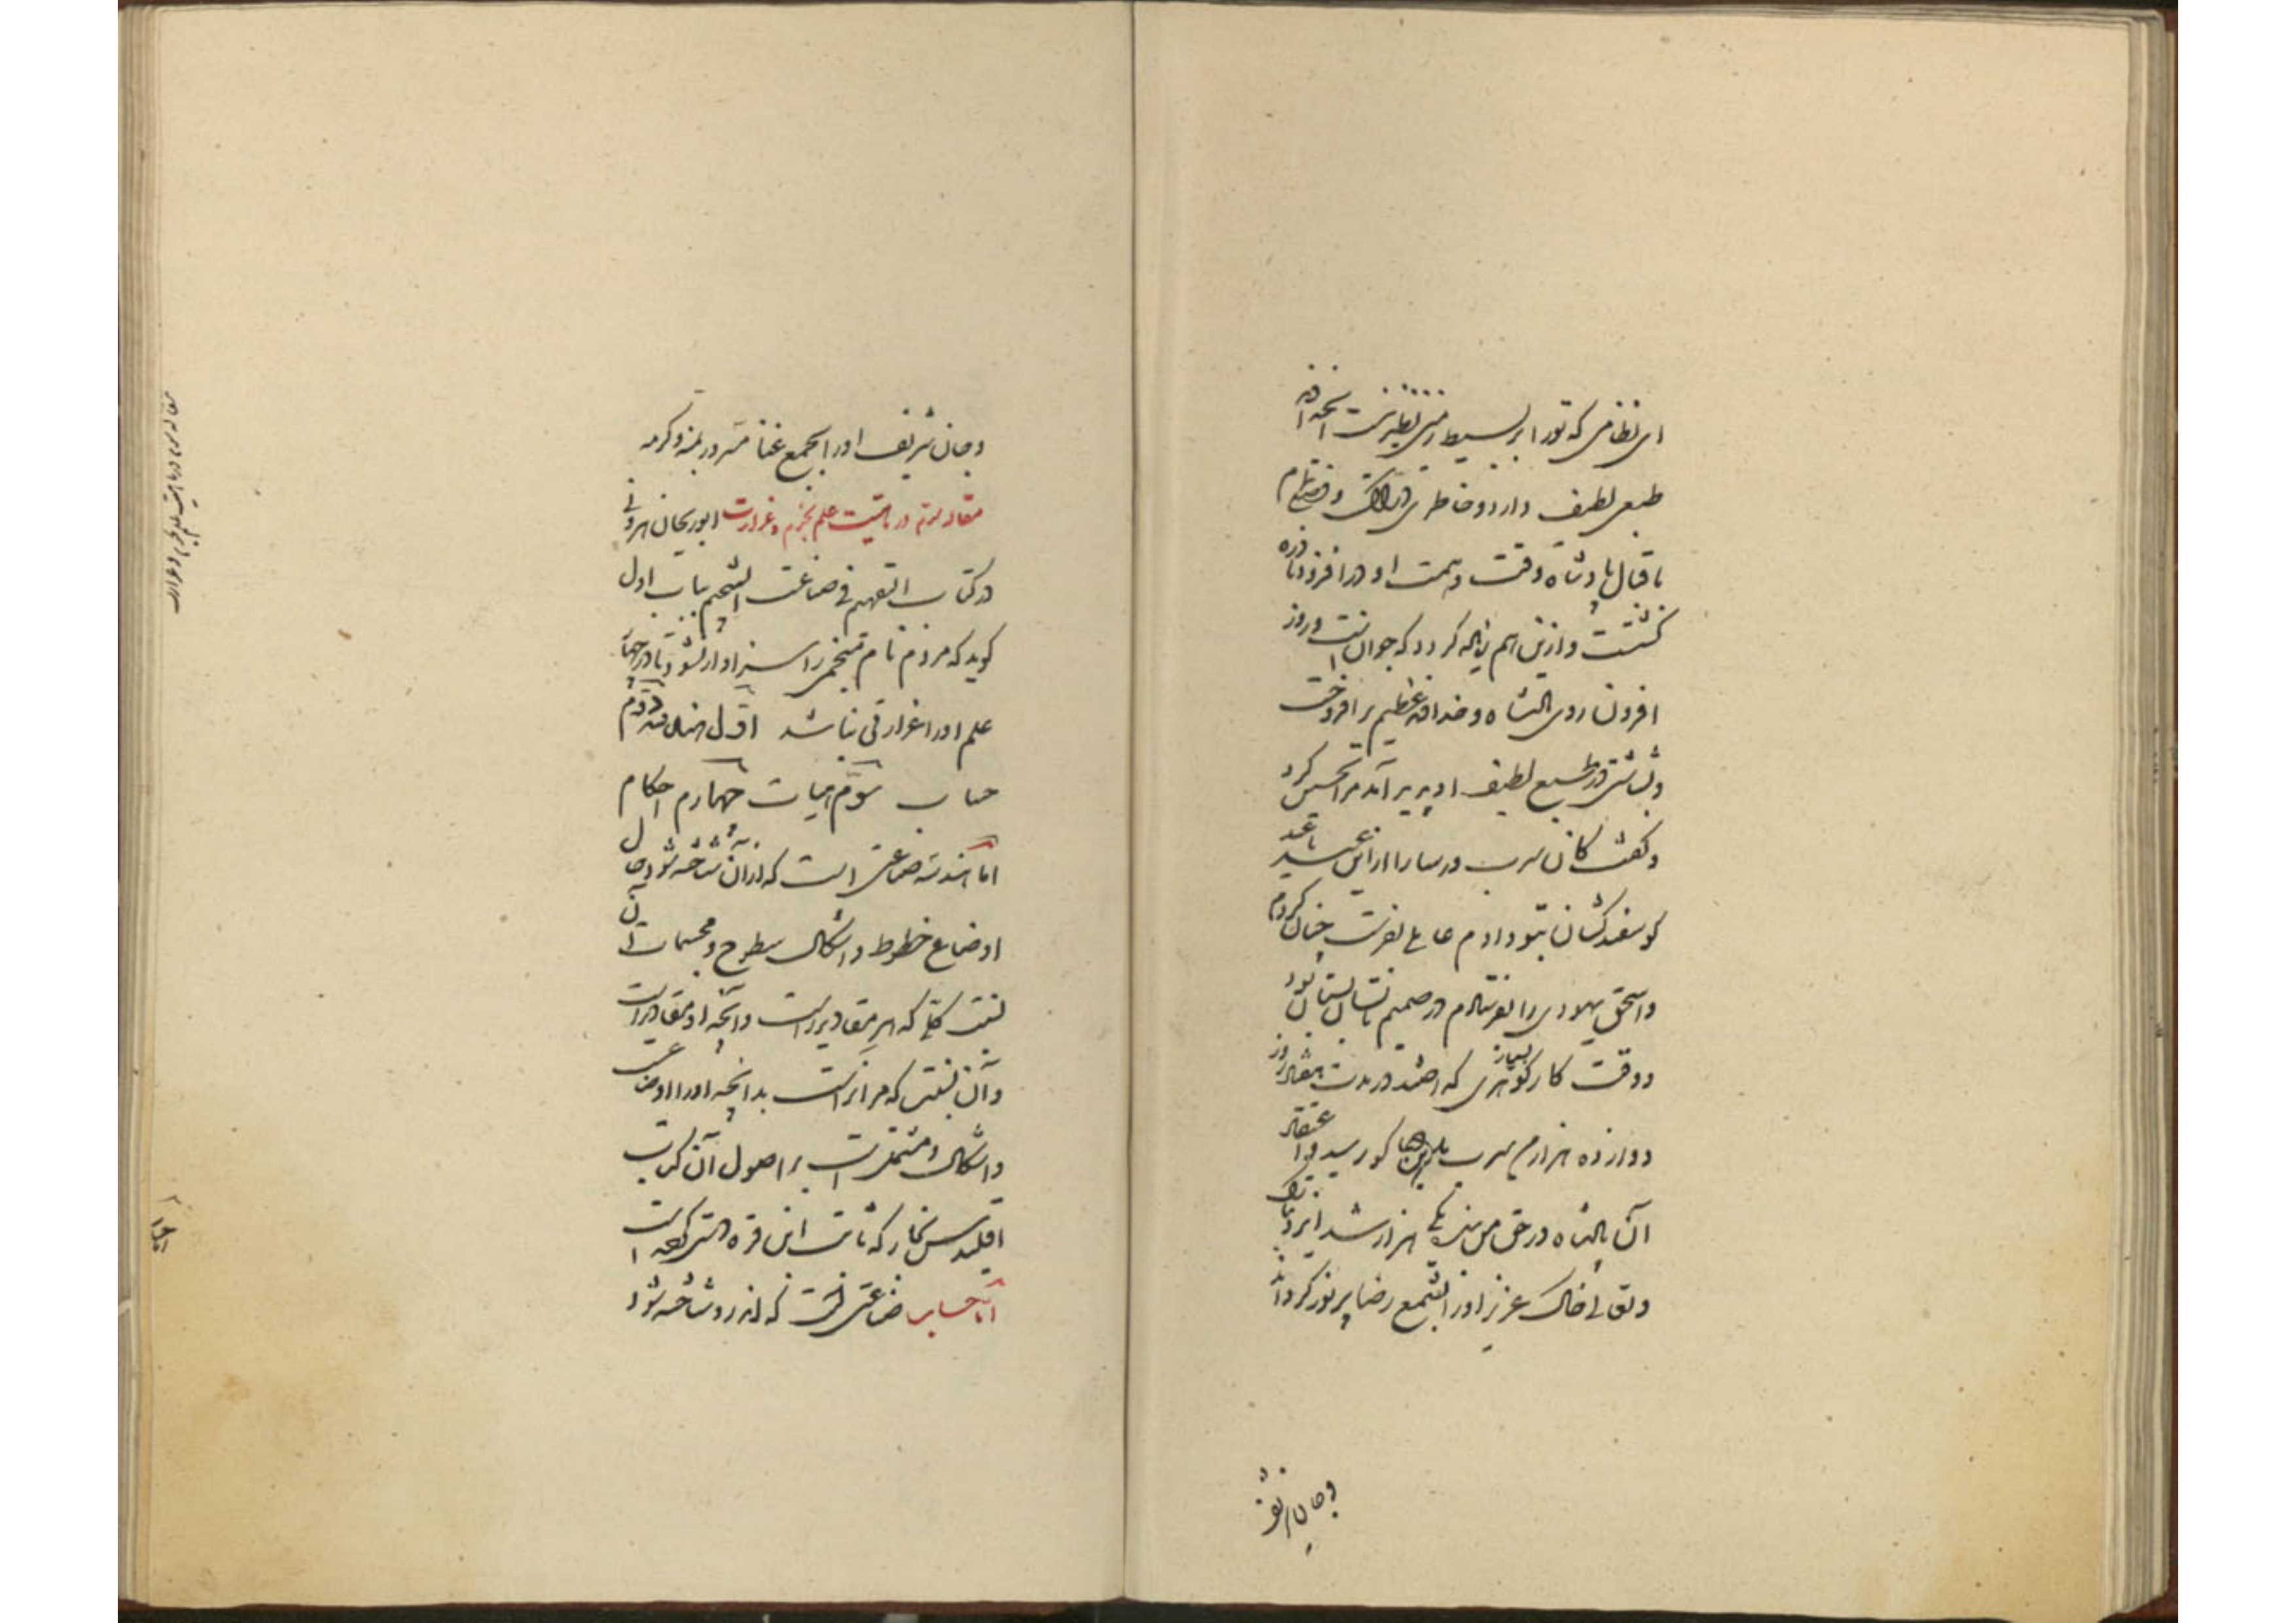 این نظامی که تو را بر بسیط زمین نظیر نیست آنچه او
طبعی لطیف دارد و خاطری و فضل تمام
باقبال پادشاه وقت و همت او در افزود نادره
گشت و ازین هم زیاده گردد که جوانست و روز
افزون روی پادشاه و خداوند عظیم بر افروخت
و بشاشتی در طبع لطیف او پدید آمد مرا تحسین کرد
و گفت کان سرب ورسا را از این عید تا عید
گوسفندکشان بتو دادم عاملی بفرست چنان کردم
و اسحق یهودی را بفرستادم در صمیم تابستان بود
و وقت کار گوهری بسیار که اخشند در مدت هفتاد روز
دوازده هزار من سرب بدین دعاگو رسید و اعتقاد
آن پادشاه در حق من بنده یکی هزار شد ایزد تبارک
و تعالی خاک عزیز او را بشمع رضا پر نور گرداناد
و جان شریف
و جان شریف او را بجمع غنا مسرور بمنه و کرمه
مقاله سوم در ماهیت علم نجوم و غزارت ابوریحان بیرونی
در کتاب التفهیم فی صناعت التنجیم باب اول
گوید که مردم نام منجمی را سزاوار نشود تا در چهار
علم او را غزارتی نباشد اول هندسه دوم
حساب سوم هیات چهارم احکام
اما هندسه صناعتی است که اندر آن شناخته شود حال
اوضاع خطوط و اشکال سطوح و مجسمات آن
نسبت کلی که مر مقادیر راست و آنچه او مقادیر است
و آن نسبتی که مر آنراست بدانچه او را اوضاعست
و اشکال و مشتملست بر اصول آن کتاب
اقلیدس نجار که ثابت ابن قره درستی کرده است
اما حساب صناعتی است که اندر او شناخته شود
مقاله سوم در ماهیت علم نجوم و غزارت
اما حساب